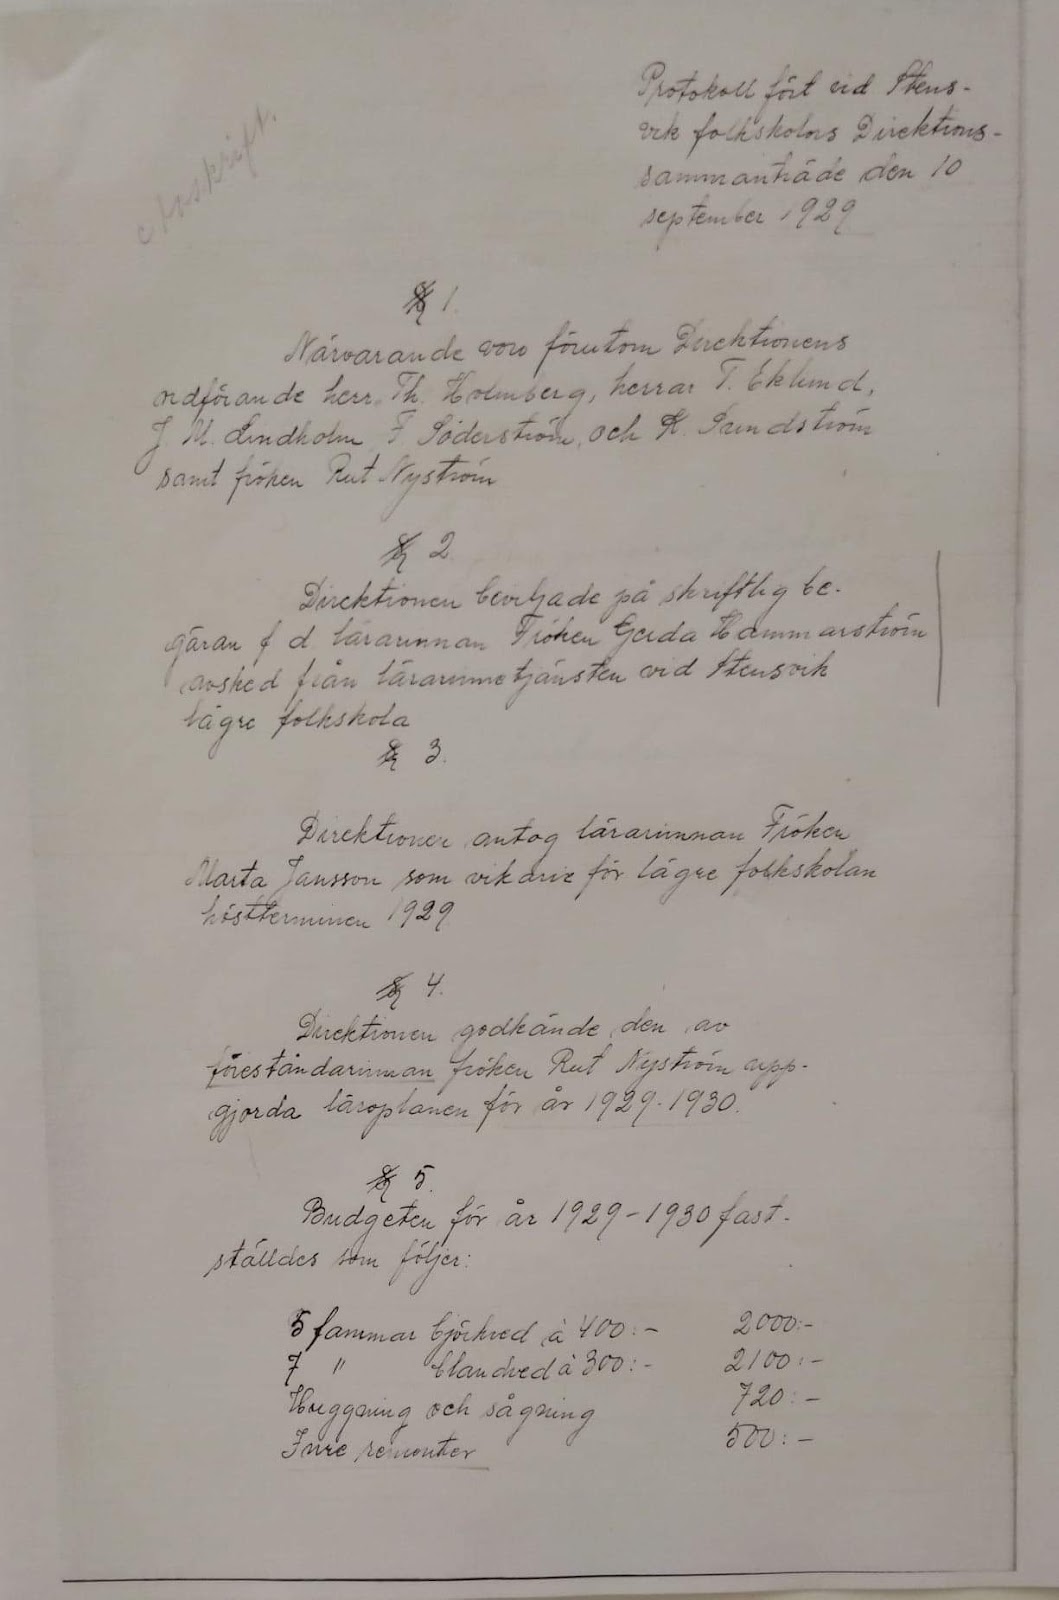 Avskrift.
Protokoll fört vid Stens-
vik folkskolas Direktions-
sammanträde den 10
september 1929
§ 1.
Närvarande voro förutom Direktionens
ordförande herr. Th. Holmberg, herrar T. Eklund,
J. M. Lindholm F Söderström, och K. Sundström
samt fröken Rut Nyström
§ 2
Direktionen beviljade på skriftlig be-
gäran f d lärarinnan Fröken Gerda Hammarström
avsked från lärarinnetjänsten vid Stensvik
lägre folkskola
§ 3.
Direktionen antog lärarinnan Fröken
Marta Jansson som vikarie för lägre folkskolan
höstterminen 1929
§ 4.
Direktionen godkände den av
föreståndarinnan fröken Rut Nyström upp-
gjorda läroplanen för år 1929-1930.
§ 5.
Budgeten för år 1929-1930 fast-
ställdes som följer:
5 famnar björkved à 400:- 2000:-
7 " blandved à 300:- 2100:-
Huggning och sågning 720:-
Inre remonter 500:-